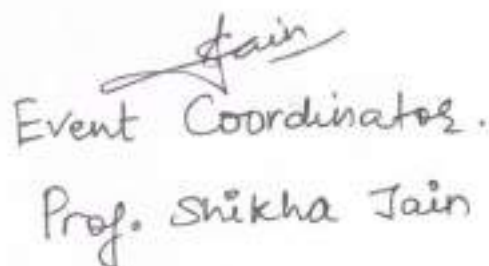 Jain
Event Coordinator.
Prof. Shikha Jain